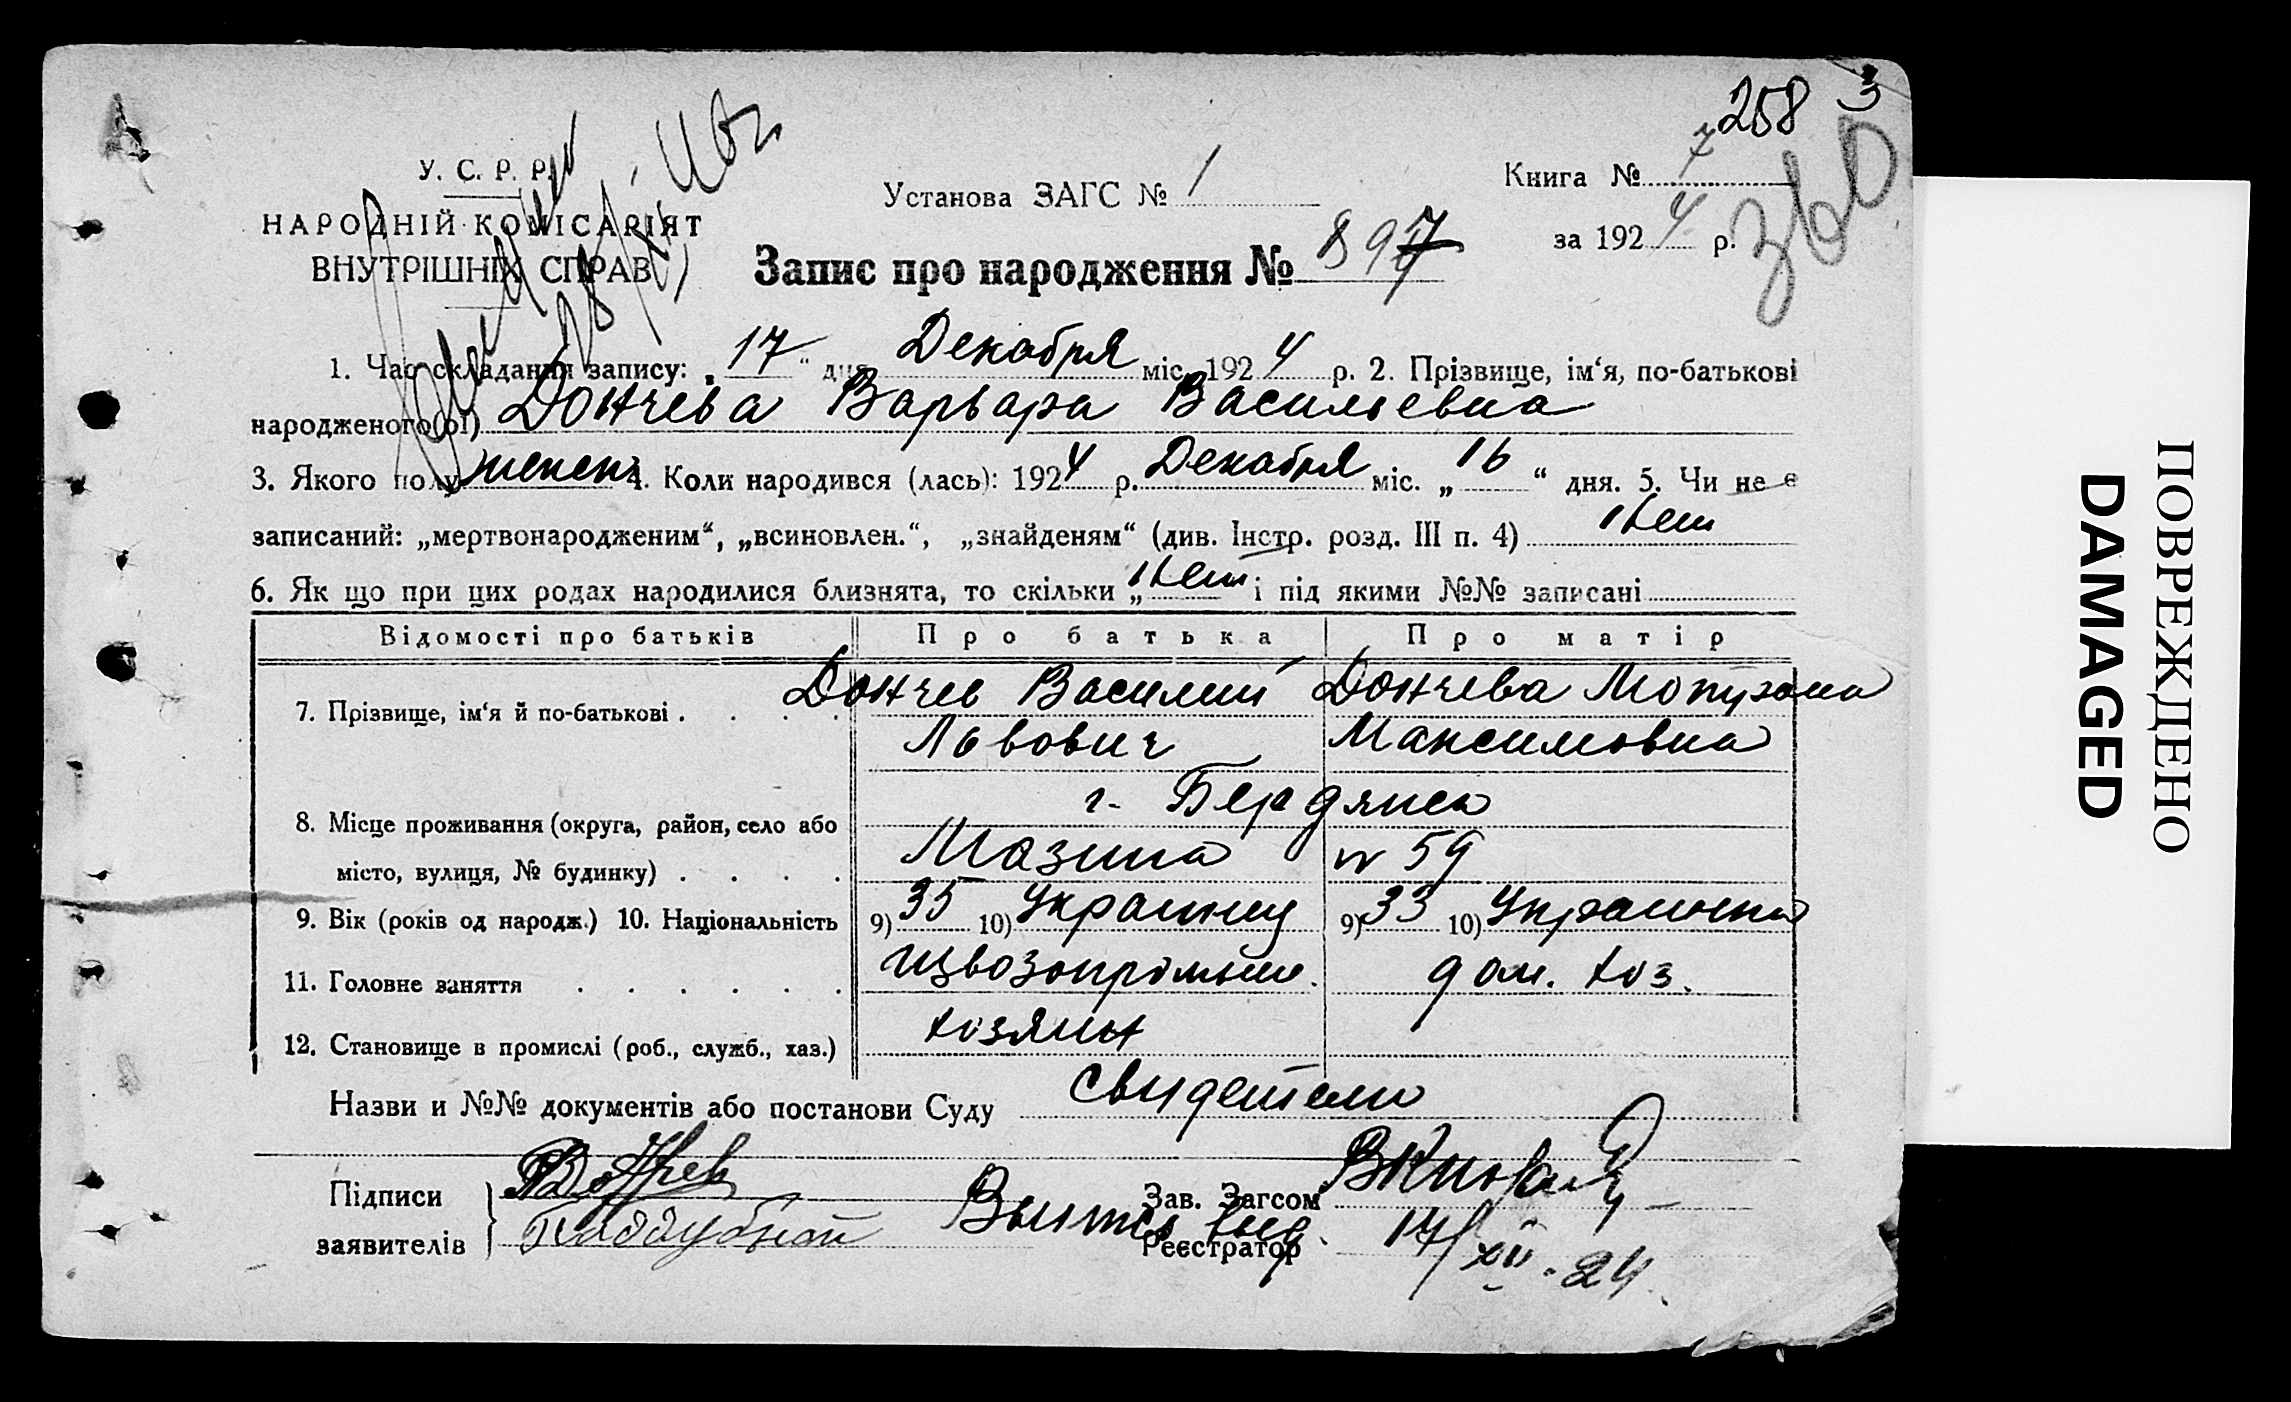 258 3
360
У. С. Р. Р.
НАРОДНІЙ КОМІСАРІЯТ
ВНУТРІШНІХ СПРАВ
Установа ЗАГС № 1
Книга № 7
за 1924 р.
Запис про народження № 897
1. Час складання запису: „17“ дня Декабря міс. 1924 р. 2. Прізвище, ім‘я, по-батькові
народженого(ої) Дончева Варвара Васильевна
3. Якого полу женск 4. Коли народився (лась): 1924 р. Декабря міс. „16“ дня. 5. Чи не є
записаний: „мертвонародженим“, „всиновлен.“, „знайденям“ (див. Інстр. розд. III п. 4) Нет
6. Як що при цих родах народилися близнята, то скільки „Нет і під якими №№ записані
Відомості про батьків Про батька Про матір
7. Прізвище, ім‘я й по-батькові . . . . Дончев Василий Дончева
Львович Максимовна
г. Бердянск
8. Місце проживання (округа, район, село або
місто, вулиця, № будинку) . . . . Мазина № 59
9. Вік (років од народж.) 10. Національність 9) 35 10) Украинец 9) 33 10) Украинка
11. Головне заняття . . . . . . дом. хоз.
12. Становище в промислі (роб., служб., хаз.) хозяин
Назви и №№ документів або постанови Суду Свидетели
Підписи заявителів Дончев
Поддубный
Зав. Загсом
Реєстратор 17/XII-24
ПОВРЕЖДЕНО
DAMAGED